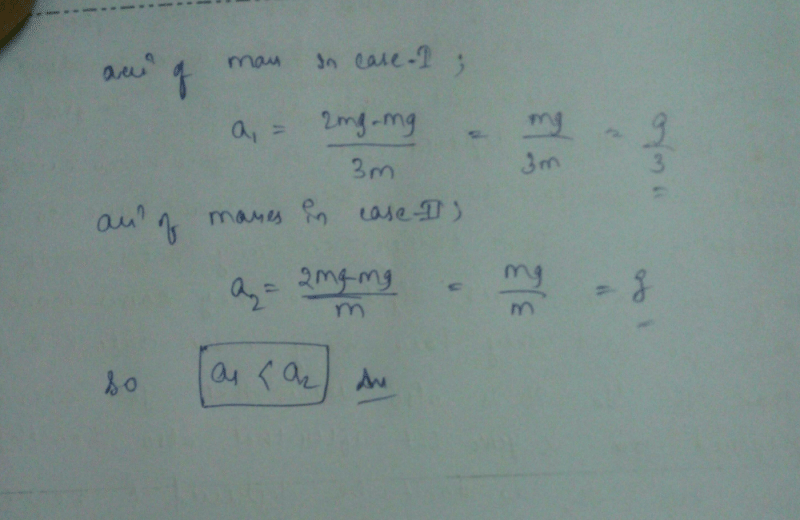 accⁿ of mass in case-I ;
a₁ = 2mg-mg/3m = mg/3m = g/3
accⁿ of masses in case-II ;
a₂ = 2mg-mg/m = mg/m = g
so a₁ < a₂ Ans